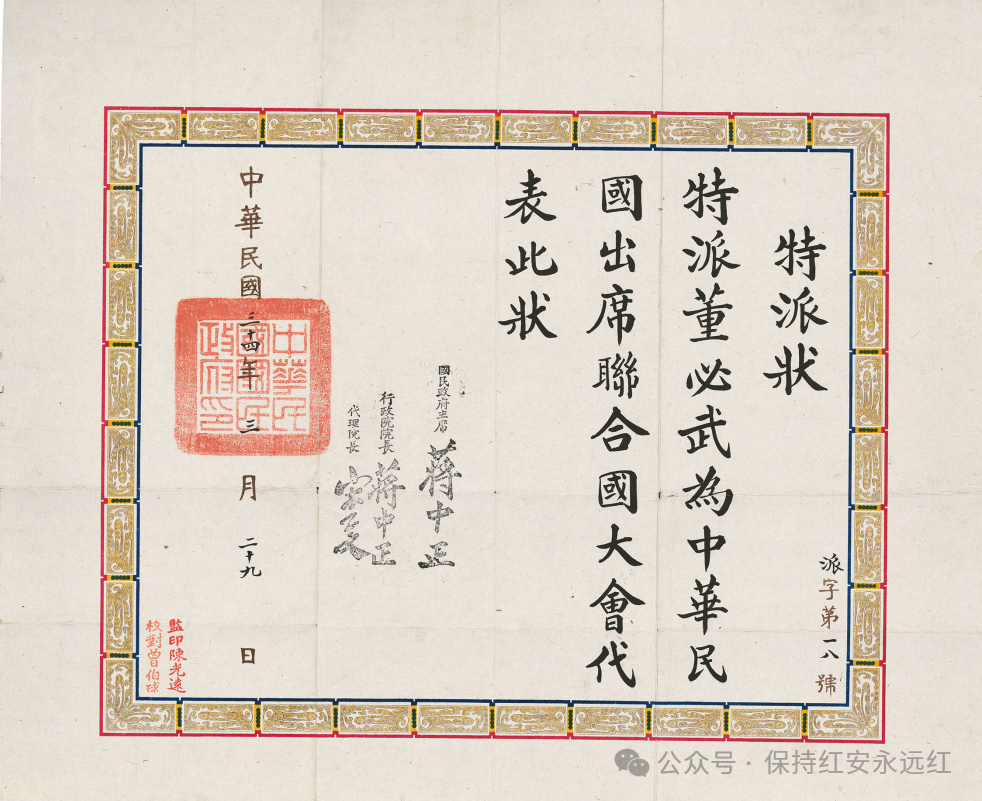 特派狀
特派董必武為中華民
國出席聯合國大會代
表此狀
國民政府主席 蔣中正
行政院院長 蔣中正
代理院長 宋子文
中華民國三十四年三月二十九日
中華民
國國民
政府印
派字第一八號
監印陳光遠
校對曾伯球
公众号·保持红安永远红